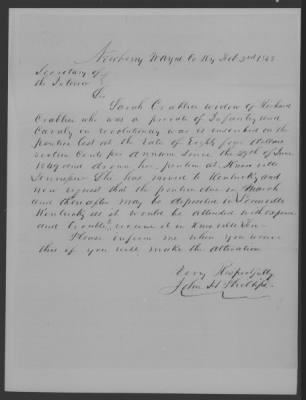 Newberry Wayne Co Ky Feb 3rd 1853
Secretary of
the Interior
Sir
Sarah Crabtree widow of Richard
Crabtree who was a private of Infantry and
Cavalry in revolutionary war is inscribed on the
pention List at the rate of Eighty four dollars
Cents per Annum Since the of June
1849 and drawn her pention at Knoxville
Tennessee She has moved to Kentucky and
now request that the pention due in March
and thereafter may be deposited in Louisville
Kentucky as it would be attended with expence
and trouble to receive it in Knoxville Ten
Please inform me when you receive
this if you will make the alteration
Very Respectfully
John H Phillips